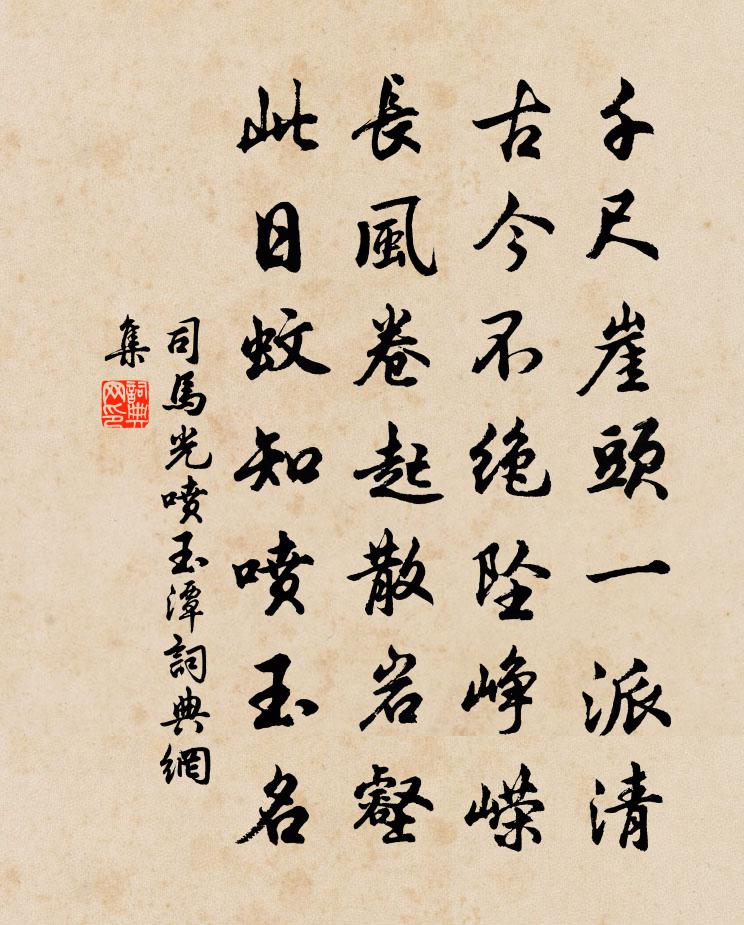 千尺崖頭一派清
古今不絶坠峥嵘
長風卷起散岩壑
此日蚊知噴玉名
司馬光噴玉潭詞典網
集
詞典
网印